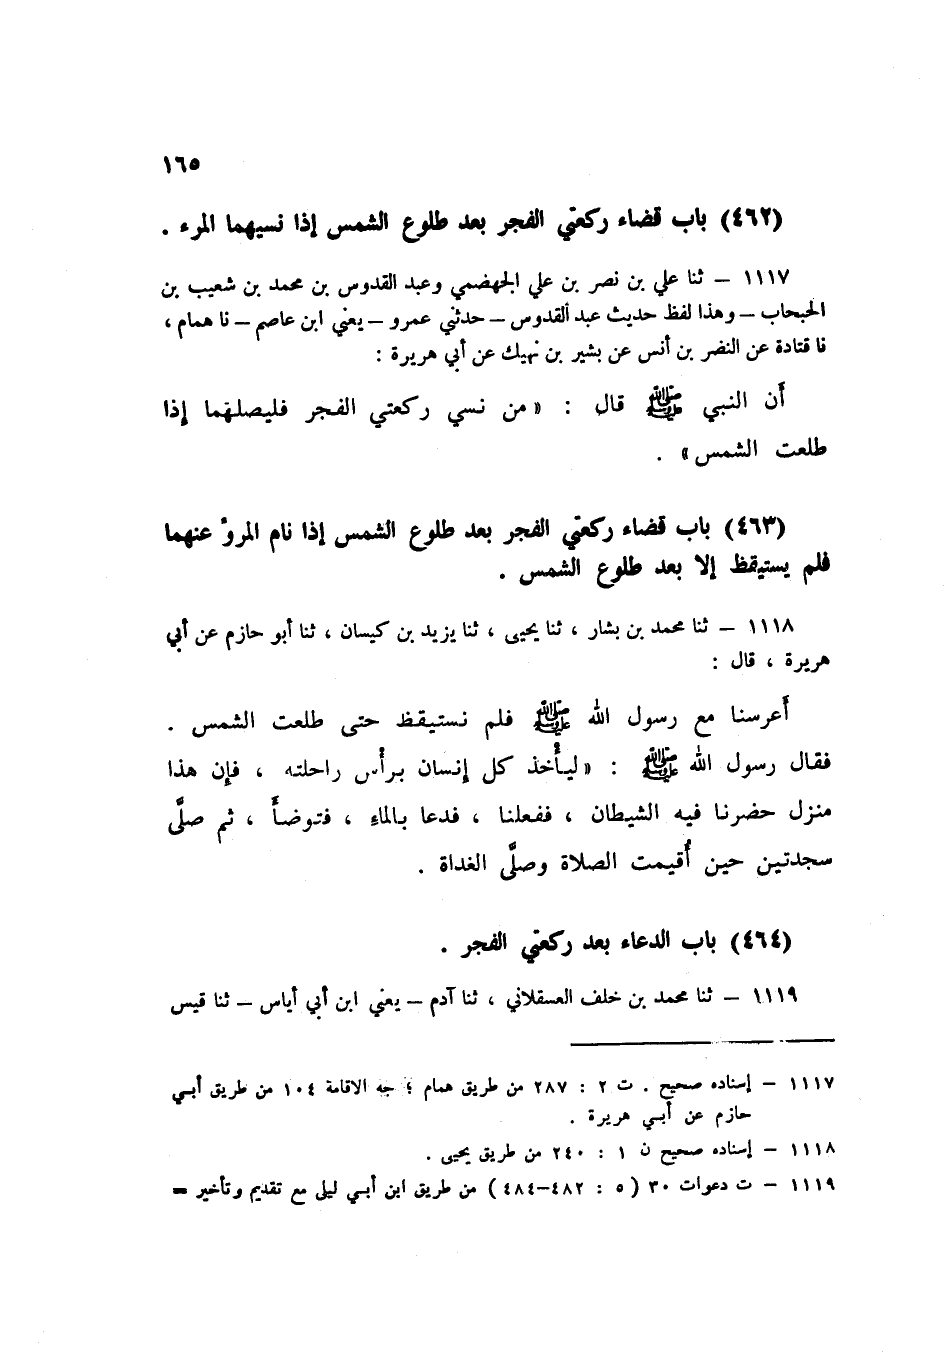 ١٦٥
(٤٦٢) باب قضاء ركعتي الفجر بعد طلوع الشمس إذا نسيهما المرء .
١١١٧ – ثنا علي بن نصر بن علي الجهضمي وعبد القدوس بن محمد بن شعيب بن
الحبحاب – وهذا لفظ حديث عبد القدوس – حدثني عمرو – يعني ابن عاصم – نا همام ،
نا قتادة عن النضر بن أنس عن بشير بن نهيك عن أبي هريرة :
أن النبي ﷺ قال : « من نسي ركعتي الفجر فليصلهما إذا
طلعت الشمس » .
(٤٦٣) باب قضاء ركعتي الفجر بعد طلوع الشمس إذا نام المرؤ عنهما
فلم يستيقظ إلا بعد طلوع الشمس .
١١١٨ – ثنا محمد بن بشار ، ثنا يحيى ، ثنا يزيد بن كيسان ، ثنا أبو حازم عن أبي
هريرة ، قال :
أعرسنا مع رسول الله ﷺ فلم نستيقظ حتى طلعت الشمس .
فقال رسول الله ﷺ : « ليأخذ كل إنسان برأس راحلته ، فإن هذا
منزل حضرنا فيه الشيطان ، ففعلنا ، فدعا بالماء ، فتوضأ ، ثم صلَّى
سجدتين حين أُقيمت الصلاة وصلَّى الغداة .
(٤٦٤) باب الدعاء بعد ركعتي الفجر .
١١١٩ – ثنا محمد بن خلف العسقلاني ، ثنا آدم – يعني ابن أبي أياس – ثنا قيس
١١١٧ – إسناده صحيح . ت ٢ : ٢٨٧ من طريق همام ؛ جه الاقامة ١٠٤ من طريق أبي
حازم عن أبي هريرة .
١١١٨ – إسناده صحيح ن ١ : ٢٤٠ من طريق يحيى .
١١١٩ – ت دعوات ٣٠ ( ٥ : ٤٨٢–٤٨٤ ) من طريق ابن أبي ليلى مع تقديم وتأخير =